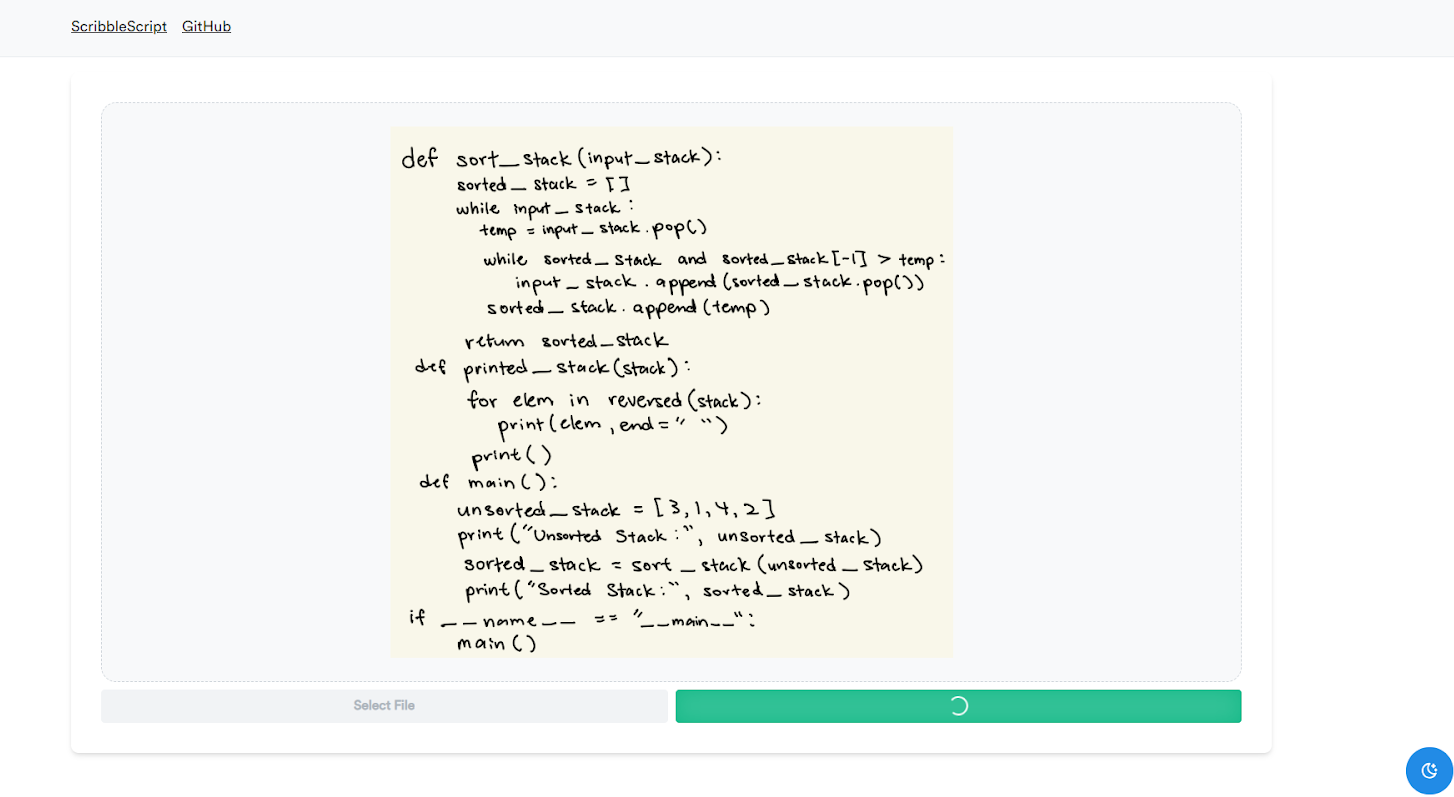 ScribbleScript GitHub
def sort_stack(input_stack):
sorted_stack = []
while input_stack:
temp = input_stack.pop()
while sorted_stack and sorted_stack[-1] > temp:
input_stack.append(sorted_stack.pop())
sorted_stack.append(temp)
return sorted_stack
def printed_stack(stack):
for elem in reversed(stack):
print(elem, end=" ")
print()
def main():
unsorted_stack = [3,1,4,2]
print("Unsorted Stack:", unsorted_stack)
sorted_stack = sort_stack(unsorted_stack)
print("Sorted Stack:", sorted_stack)
if __name__ == "__main__":
main()
Select File